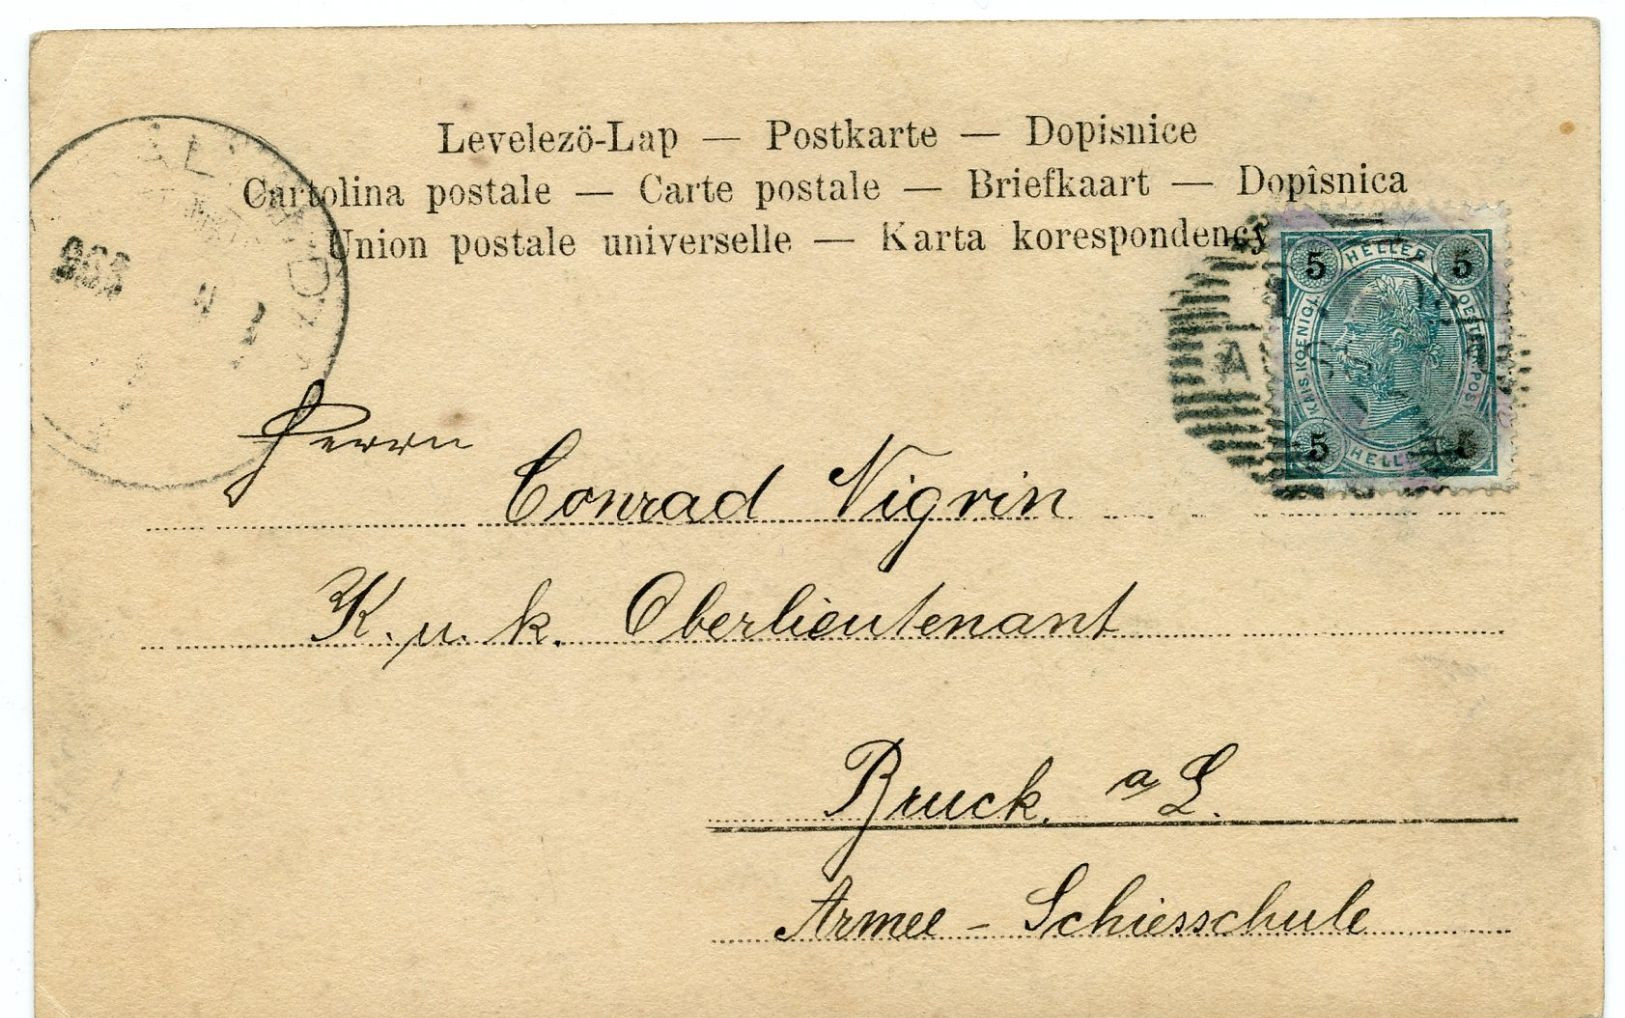 Levelezö-Lap — Postkarte — Dopisnice
Cartolina postale — Carte postale — Briefkaart — Dopîsnica
Union postale universelle — Karta korespondency
5 HELLER 5
KAIS. KOENIGL.
5 HELLER 5
Herrn
Conrad Nigrin
K. u. k. Oberlieutenant
Bruck. a/L.
Armee - Schiesschule